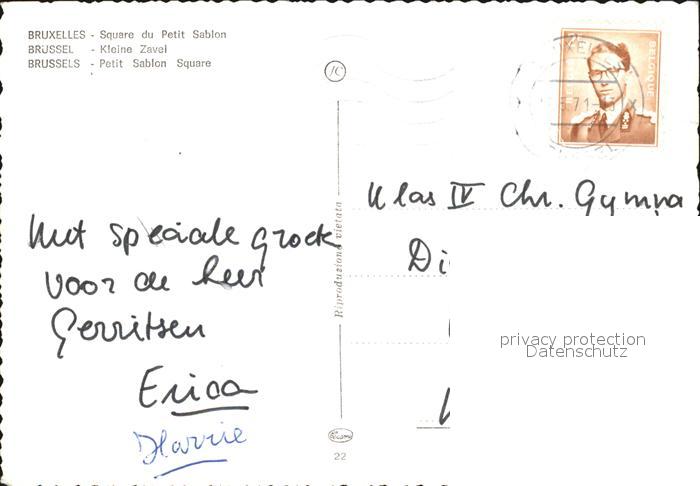 BRUXELLES - Square du Petit Sablon
BRÜSSEL - Kleine Zavel
BRUSSELS - Petit Sablon Square
Met speciale groet
voor de heer
Gerritsen
Erica
Harrie
Riproduzione vietata
22
BELGIQUE
71
Klas IV Chr. Gymna
Di
privacy protection
Datenschutz